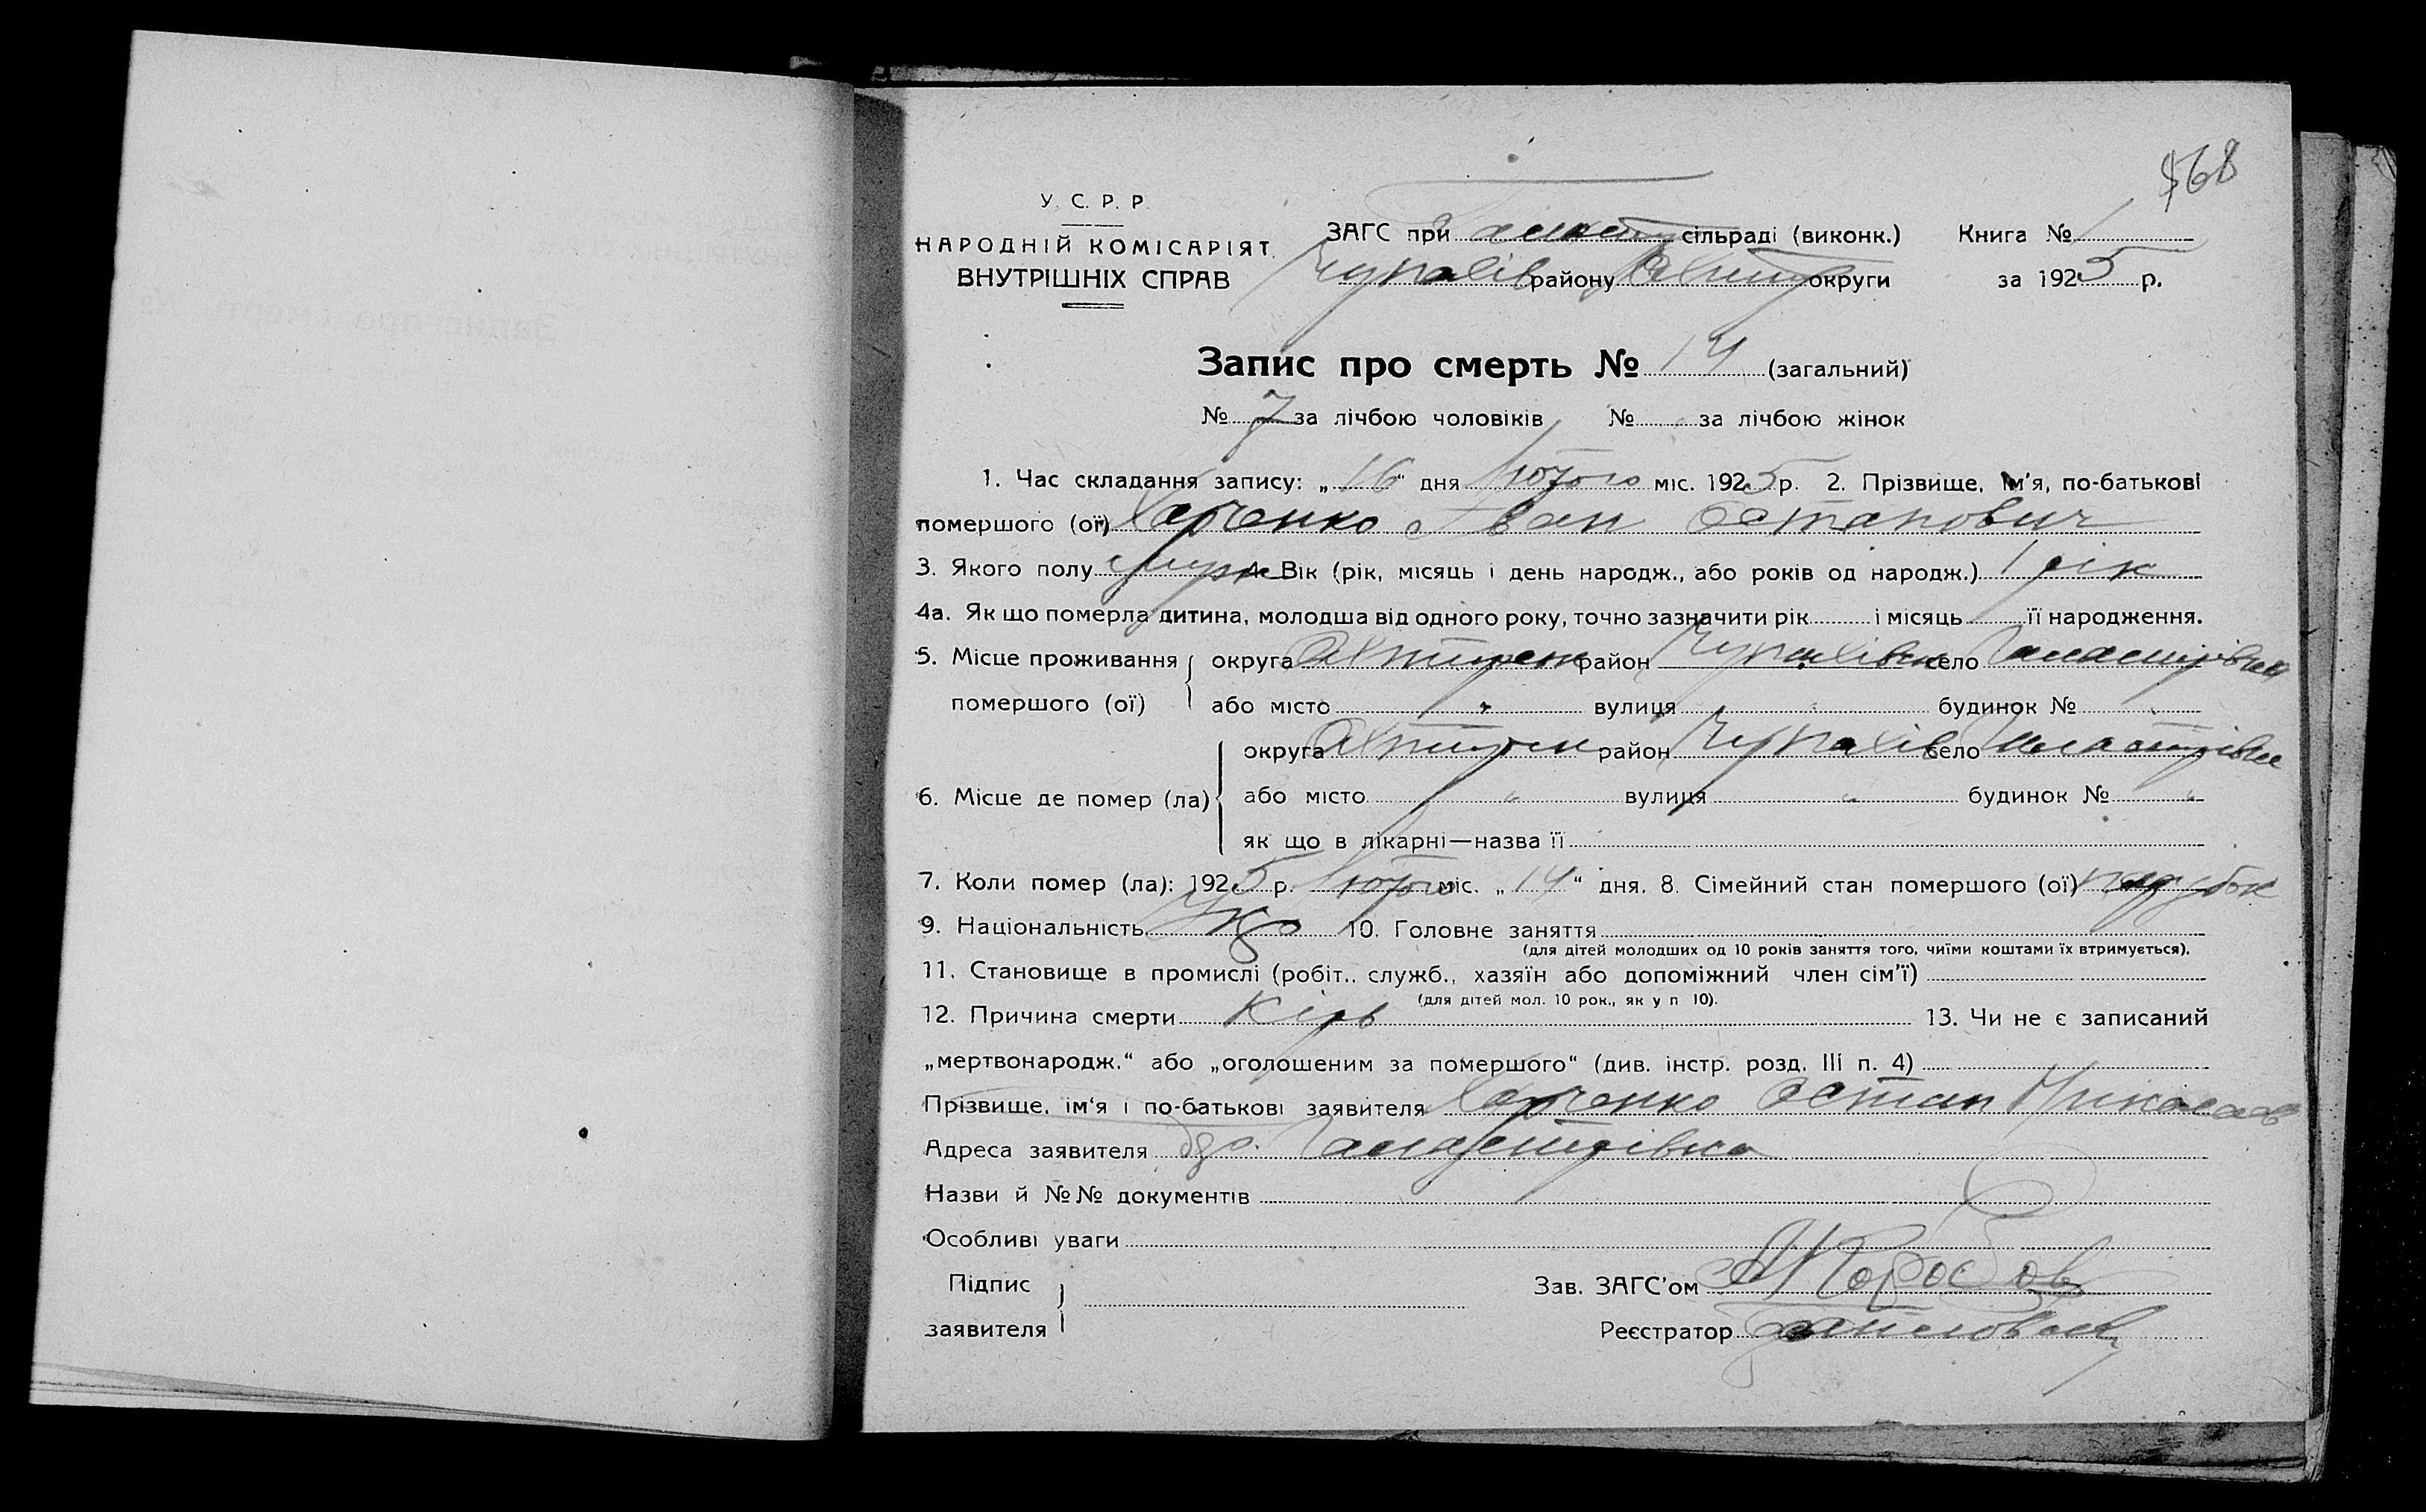 568
У. С. Р. Р.
НАРОДНІЙ КОМІСАРІЯТ
ВНУТРІШНІХ СПРАВ
ЗАГС при сільраді (виконк.)
Чупахів району Охтир округи
Книга № 1
за 1925 р.
Запис про смерть № 14 (загальний)
№ 7 за лічбою чоловіків № за лічбою жінок
1. Час складання запису: „16“ дня Лютого міс. 1925 р. 2. Прізвище, ім'я, по-батькові
помершого (ої) Харченко Іван Остапович
3. Якого полу муж 4. Вік (рік, місяць і день народж., або років од народж.) 1 рік
4а. Як що померла дитина, молодша від одного року, точно зазначити рік і місяць її народження.
5. Місце проживання помершого (ої) округа Охтирськ район Чупахівськ село
або місто вулиця будинок №
6. Місце де помер (ла) округа Охтирськ район Чупахів село
або місто вулиця будинок №
як що в лікарні—назва її
7. Коли помер (ла): 1925 р. Лютого міс. „14“ дня. 8. Сімейний стан помершого (ої) парубок
9. Національність Укр 10. Головне заняття
(для дітей молодших од 10 років заняття того, чиїми коштами їх втримується).
11. Становище в промислі (робіт., служб., хазяїн або допоміжний член сім'ї)
(для дітей мол. 10 рок., як у п 10).
12. Причина смерти Кір 13. Чи не є записаний
„мертвонародж.“ або „оголошеним за помершого“ (див. інстр. розд. III п. 4)
Прізвище, ім'я і по-батькові заявителя Харченко Остап Миколаєв
Адреса заявителя
Назви й №№ документів
Особливі уваги
Підпис заявителя
Зав. ЗАГС'ом
Реєстратор